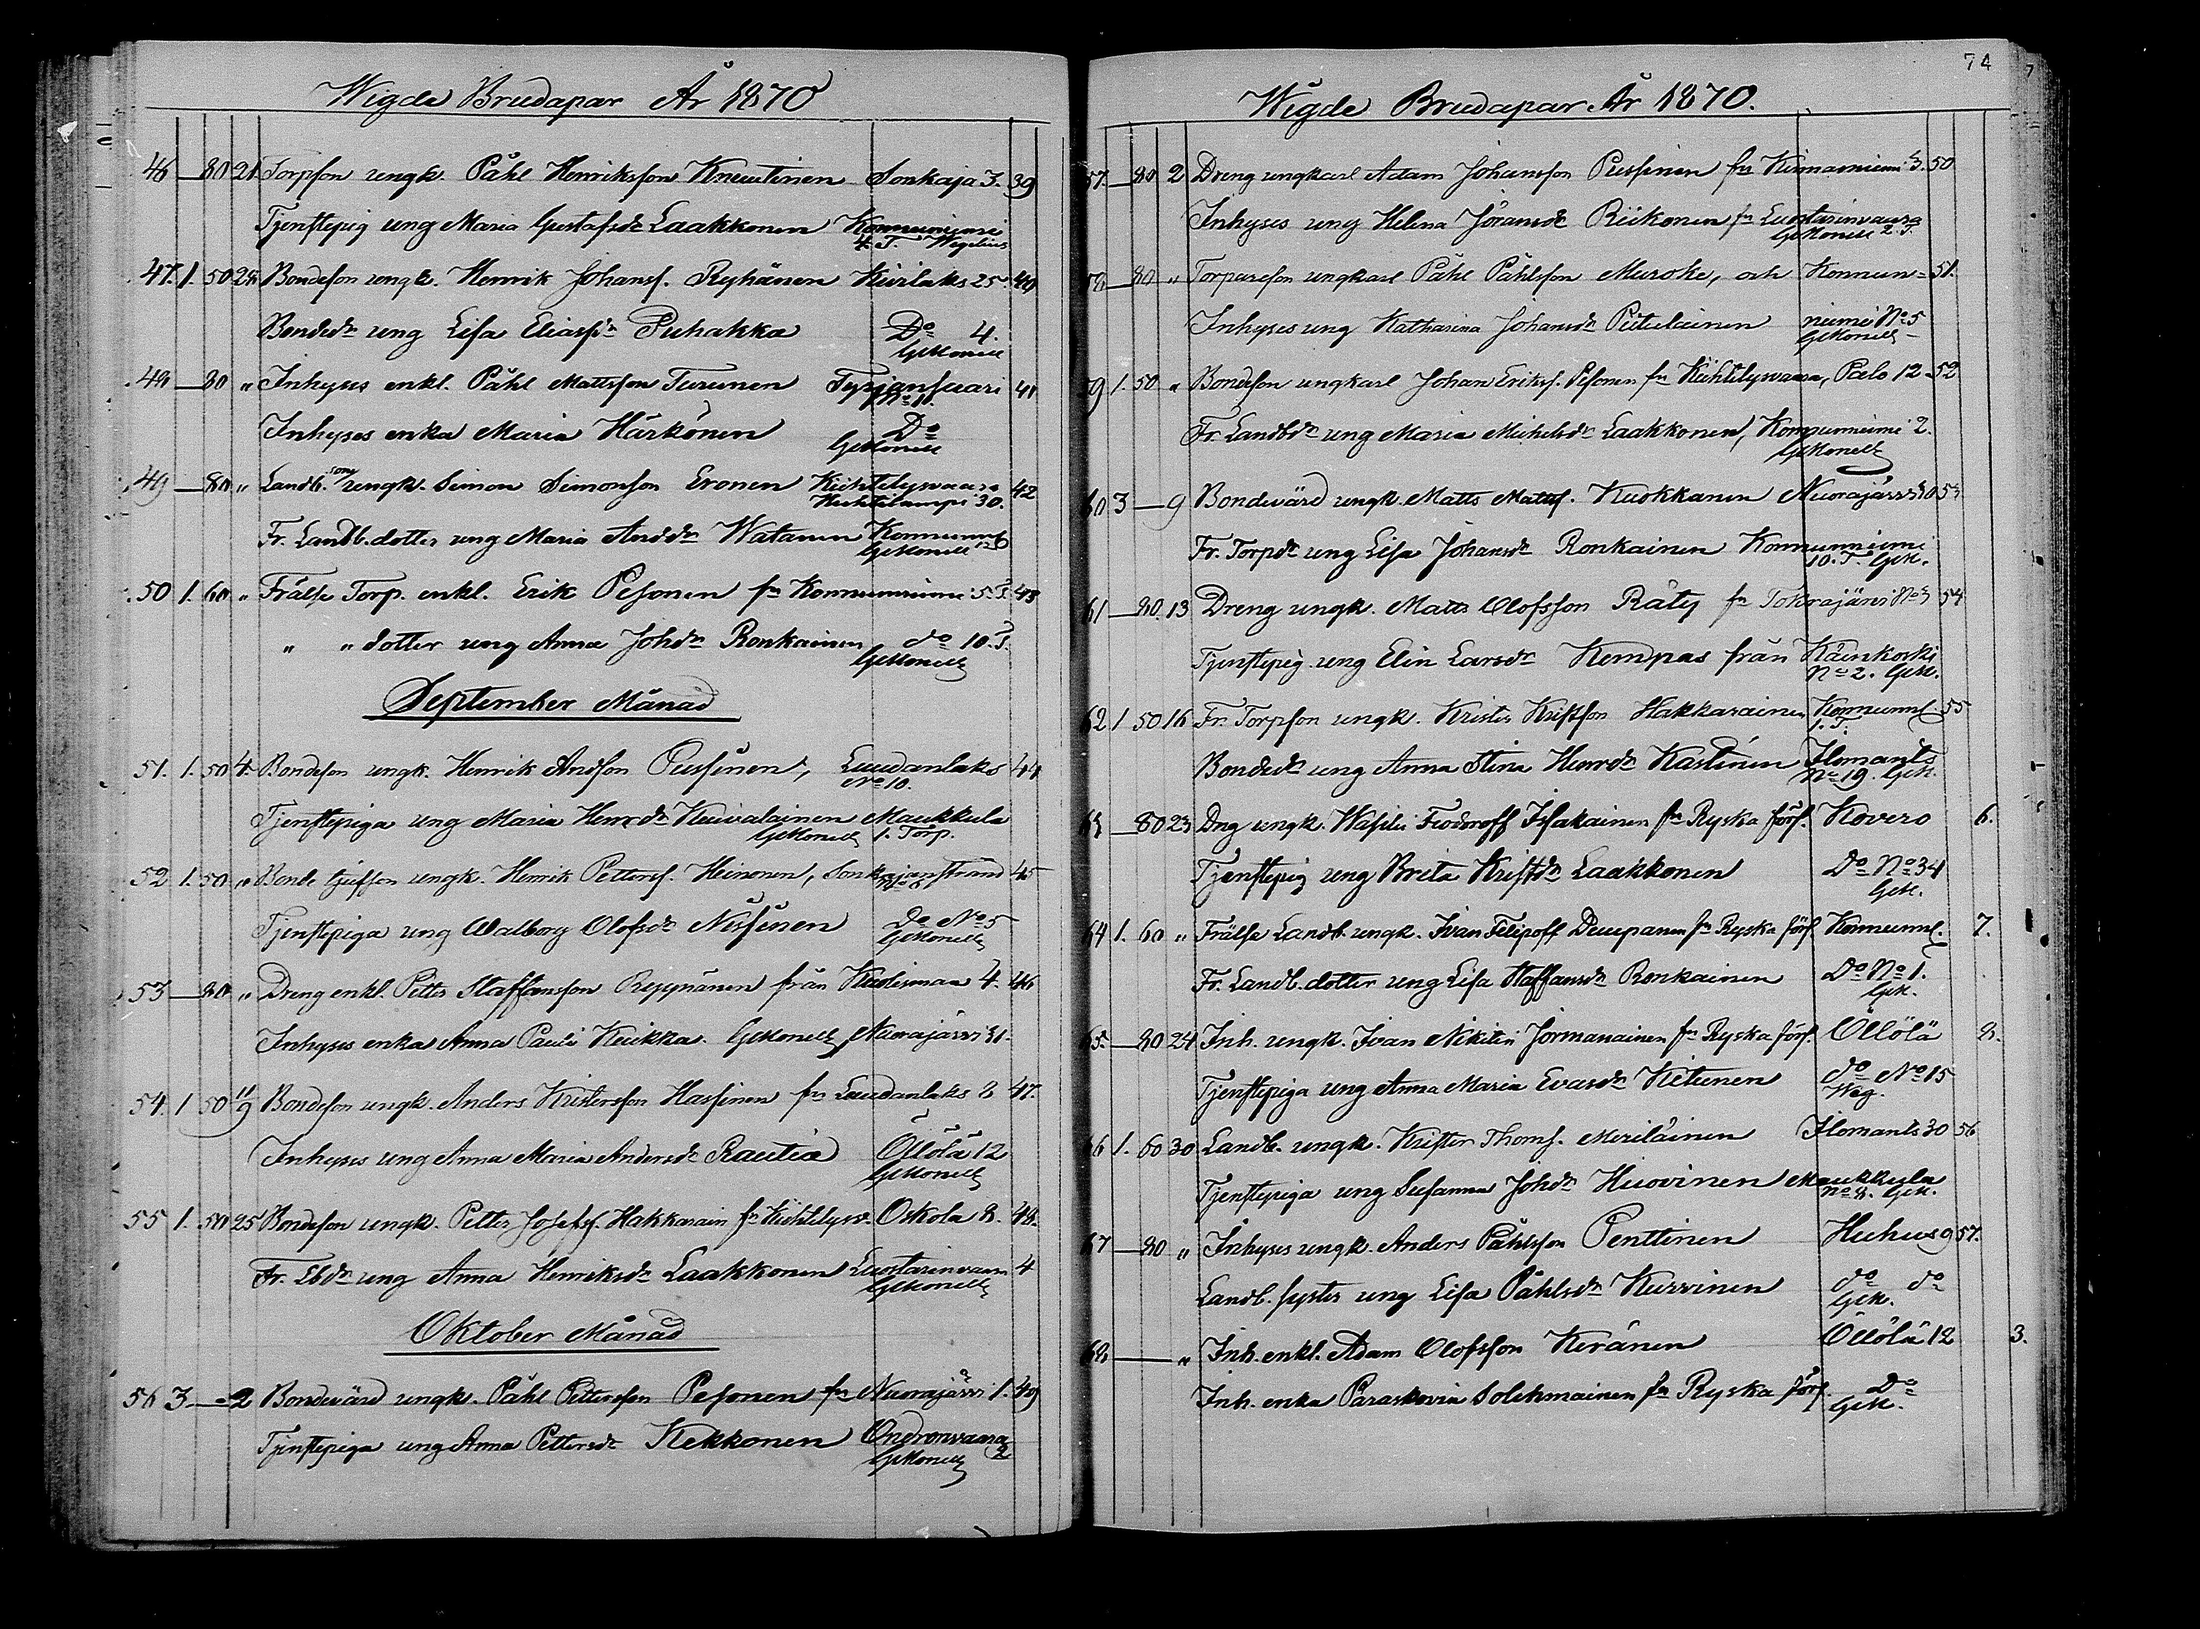 Wigde Brudapar År 1870
46 — 80 21 Torpson ungk. Påhl Henriksson Kneutinen Sonkaja 3. 39
Tjenstepig ung Maria Gustafsdr Laakkonen Konnunniemi
4. T. Wegelius
47. 1. 50 28 Bondeson ungk. Henrik Johanss. Ryhänen Kivilaks 25 40
Bondedr ung Lisa Eliasdr Puhakka Do 4.
GMonell
48 — 80 " Inhyses enkl. Påhl Mattsson Turunen Tyrjänsaari 41
No 11.
Inhyses enka Maria Härkönen Do
GMonell
49 — 80 " Landb. son ungk. Simon Simonson Eronen Kuihtelyswaara 42
Huhtilampi 30.
Fr. Landb. dotter ung Maria Andsdr Watanen Konnunn
GMonell
50 1. 60 " Frälse Torp. enkl. Erik Pesonen fn Konnunniemi 5. T. 43
" " dotter ung Anna Johdr Ronkainen do 10. T.
GMonell
September Månad
51. 1. 50 4. Bondeson ungk. Henrik Andson Pussinen, Luudanlaks 44
No 10.
Tjenstepiga ung Maria Henrdr Kuivalainen Maukkula
GMonell 1. Torp.
52 1. 50 " Bonde tjufson ungk. Henrik Petterss. Heinonen, Sonkajanstrand 45
No 6
Tjenstepiga ung Walborg Olofsdr Nissinen Do No 5
GMonell
53 — 80 " Dreng enkl. Petter Staffansson Reppänen från Kuolismaa 4. 46
Inhyses enka Anna Pauli Kuikka. GMonell Nuorajärvi 31.
54. 1 50 11/9 Bondeson ungk. Anders Kristersson Hassinen fn Luudanlaks 8 47.
Inhyses ung Anna Maria Andersdr Rautia Öllölä 12
GMonell
55 1. 50 25 Bondeson ungk. Petter Josefss. Hakkarain fn Kuihtelysv. Oskola 8. 48.
Fr. Lbdr ung Anna Henriksdr Laakkonen Luostarinvaara 4
GMonell
Oktober Månad
56 3. — 2 Bondevärd ungk. Påhl Pettersson Pesonen fn Nuorajärvi 1. 49
Tjenstepiga ung Anna Pettersdr Kekkonen Ondronvaara
GMonell 2
74
Wigde Brudapar År 1870.
57. — 80 2 Dreng ungkarl Adam Johansson Pussinen fn Kinnasniemi 3. 50
Inhyses ung Helena Jöransdr Riikonen fn Luostarinvaara
GMonell 2. T.
58 — 80 " Torpareson ungkarl Påhl Påhlsson Muroke, och Konnun- 51.
Inhyses ung Katharina Johansdr Piitulainen niemi No 5
GMonell
59 1. 50 " Bondeson ungkarl Johan Erikss. Pesonen fn Kuihtelyswaara, Palo 12 52
Fr. Landbdr ung Maria Michelsdr Laakkonen, Konnunniemi 2.
GMonell
60 3 — 9 Bondevärd ungk. Matts Mattss. Kuokkanen Nuorajärvi 30 53
Fr. Torpdr ung Lisa Johansdr Ronkainen Konnunniemi
10. T. GM.
61 — 80. 13 Dreng ungk. Matts Olofsson Räty fn Tokrajärvi No 3 54
Tjenstepig. ung Elin Larsdr Kempas från Käenkoski
No 2. GM.
62 1. 50 16 Fr. Torpson ungk. Krister Kristson Hakkarainen Konnunn. 55
1. T.
Bondedr ung Anna Stina Henrdr Kastinen Ilomants
No 19. GM.
63 — 80 23 Dng ungk. Wasilei Feodoroff Issakainen fn Ryska förs. Kovero 6.
Tjenstepig ung Brita Kristdr Laakkonen Do No 34
GM.
64 1. 60 " Frälse Landb. ungk. Ivan Filipoff Deupanen fn Ryska förs Konnunn. 7.
Fr. Landb. dotter ung Lisa Staffansdr Ronkainen Do No 1.
GM.
65 — 80 24 Inh. ungk. Ivan Nikitin Jormanainen fn Ryska förs. Öllölä 8.
Tjenstepiga ung Anna Maria Evasdr Kitunen do No 15
Weg.
66 1. 60 30 Landb. ungk. Krister Thoms. Meriläinen Ilomants 30 56
Tjenstepiga ung Susanna Johdr Huovinen Maukkula
No 8. GM.
67 — 80 " Inhyses ungk. Anders Påhlsson Penttinen Huhus 9 57.
Landb. syster ung Lisa Påhlsdr Kurvinen do do
GM.
68 — " Inh. enkl. Adam Olofsson Keränen Öllölä 12 3.
Inh. enka Paraskovia Solehmainen fn Ryska förs. Do
GM.